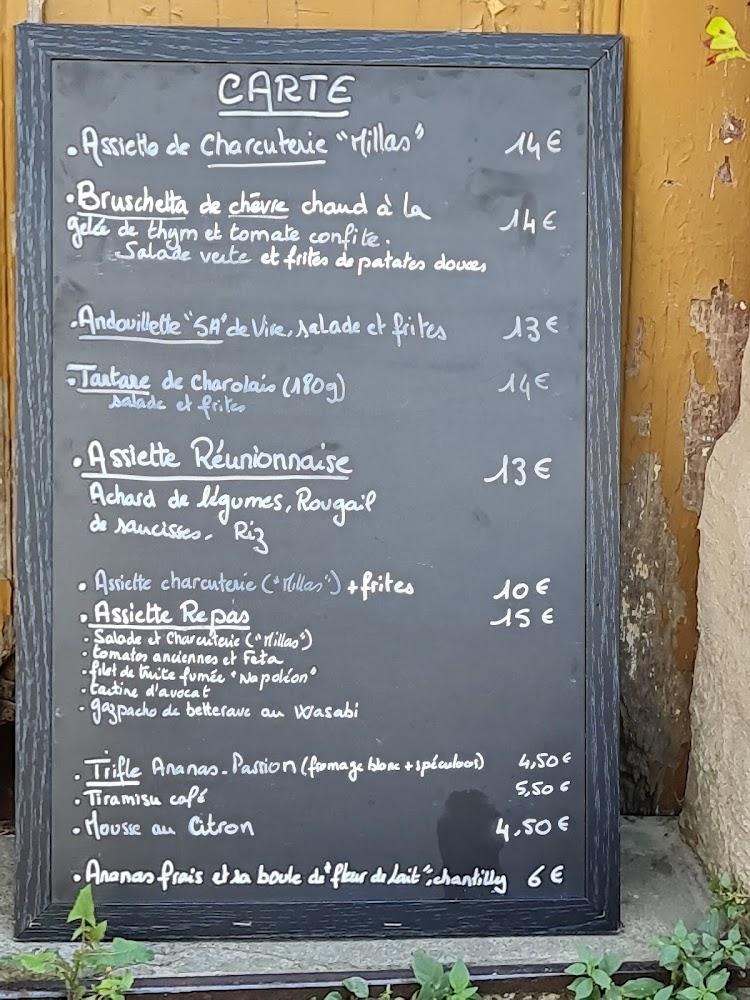 CARTE
. Assiette de Charcuterie "Millas" 14 €
. Bruschetta de chèvre chaud à la
gelée de thym et tomate confite. 14 €
Salade verte et frites de patates douces
. Andouillette "5A" de Vire, salade et frites 13 €
. Tartare de Charolais (180g) 14 €
salade et frites
. Assiette Réunionnaise 13 €
Achard de légumes, Rougail
de saucisses. Riz
. Assiette charcuterie ("Millas") + frites 10 €
. Assiette Repas 15 €
. Salade et Charcuterie ("Millas")
. tomates anciennes et Feta
. filet de truite fumée "Napoléon"
. tartine d'avocat
. gazpacho de betterave au Wasabi
. Trifle Ananas-Passion (fromage blanc + spéculoos) 4,50 €
. Tiramisu café 5,50 €
. Mousse au Citron 4,50 €
. Ananas frais et sa boule de "fleur de lait", chantilly 6 €